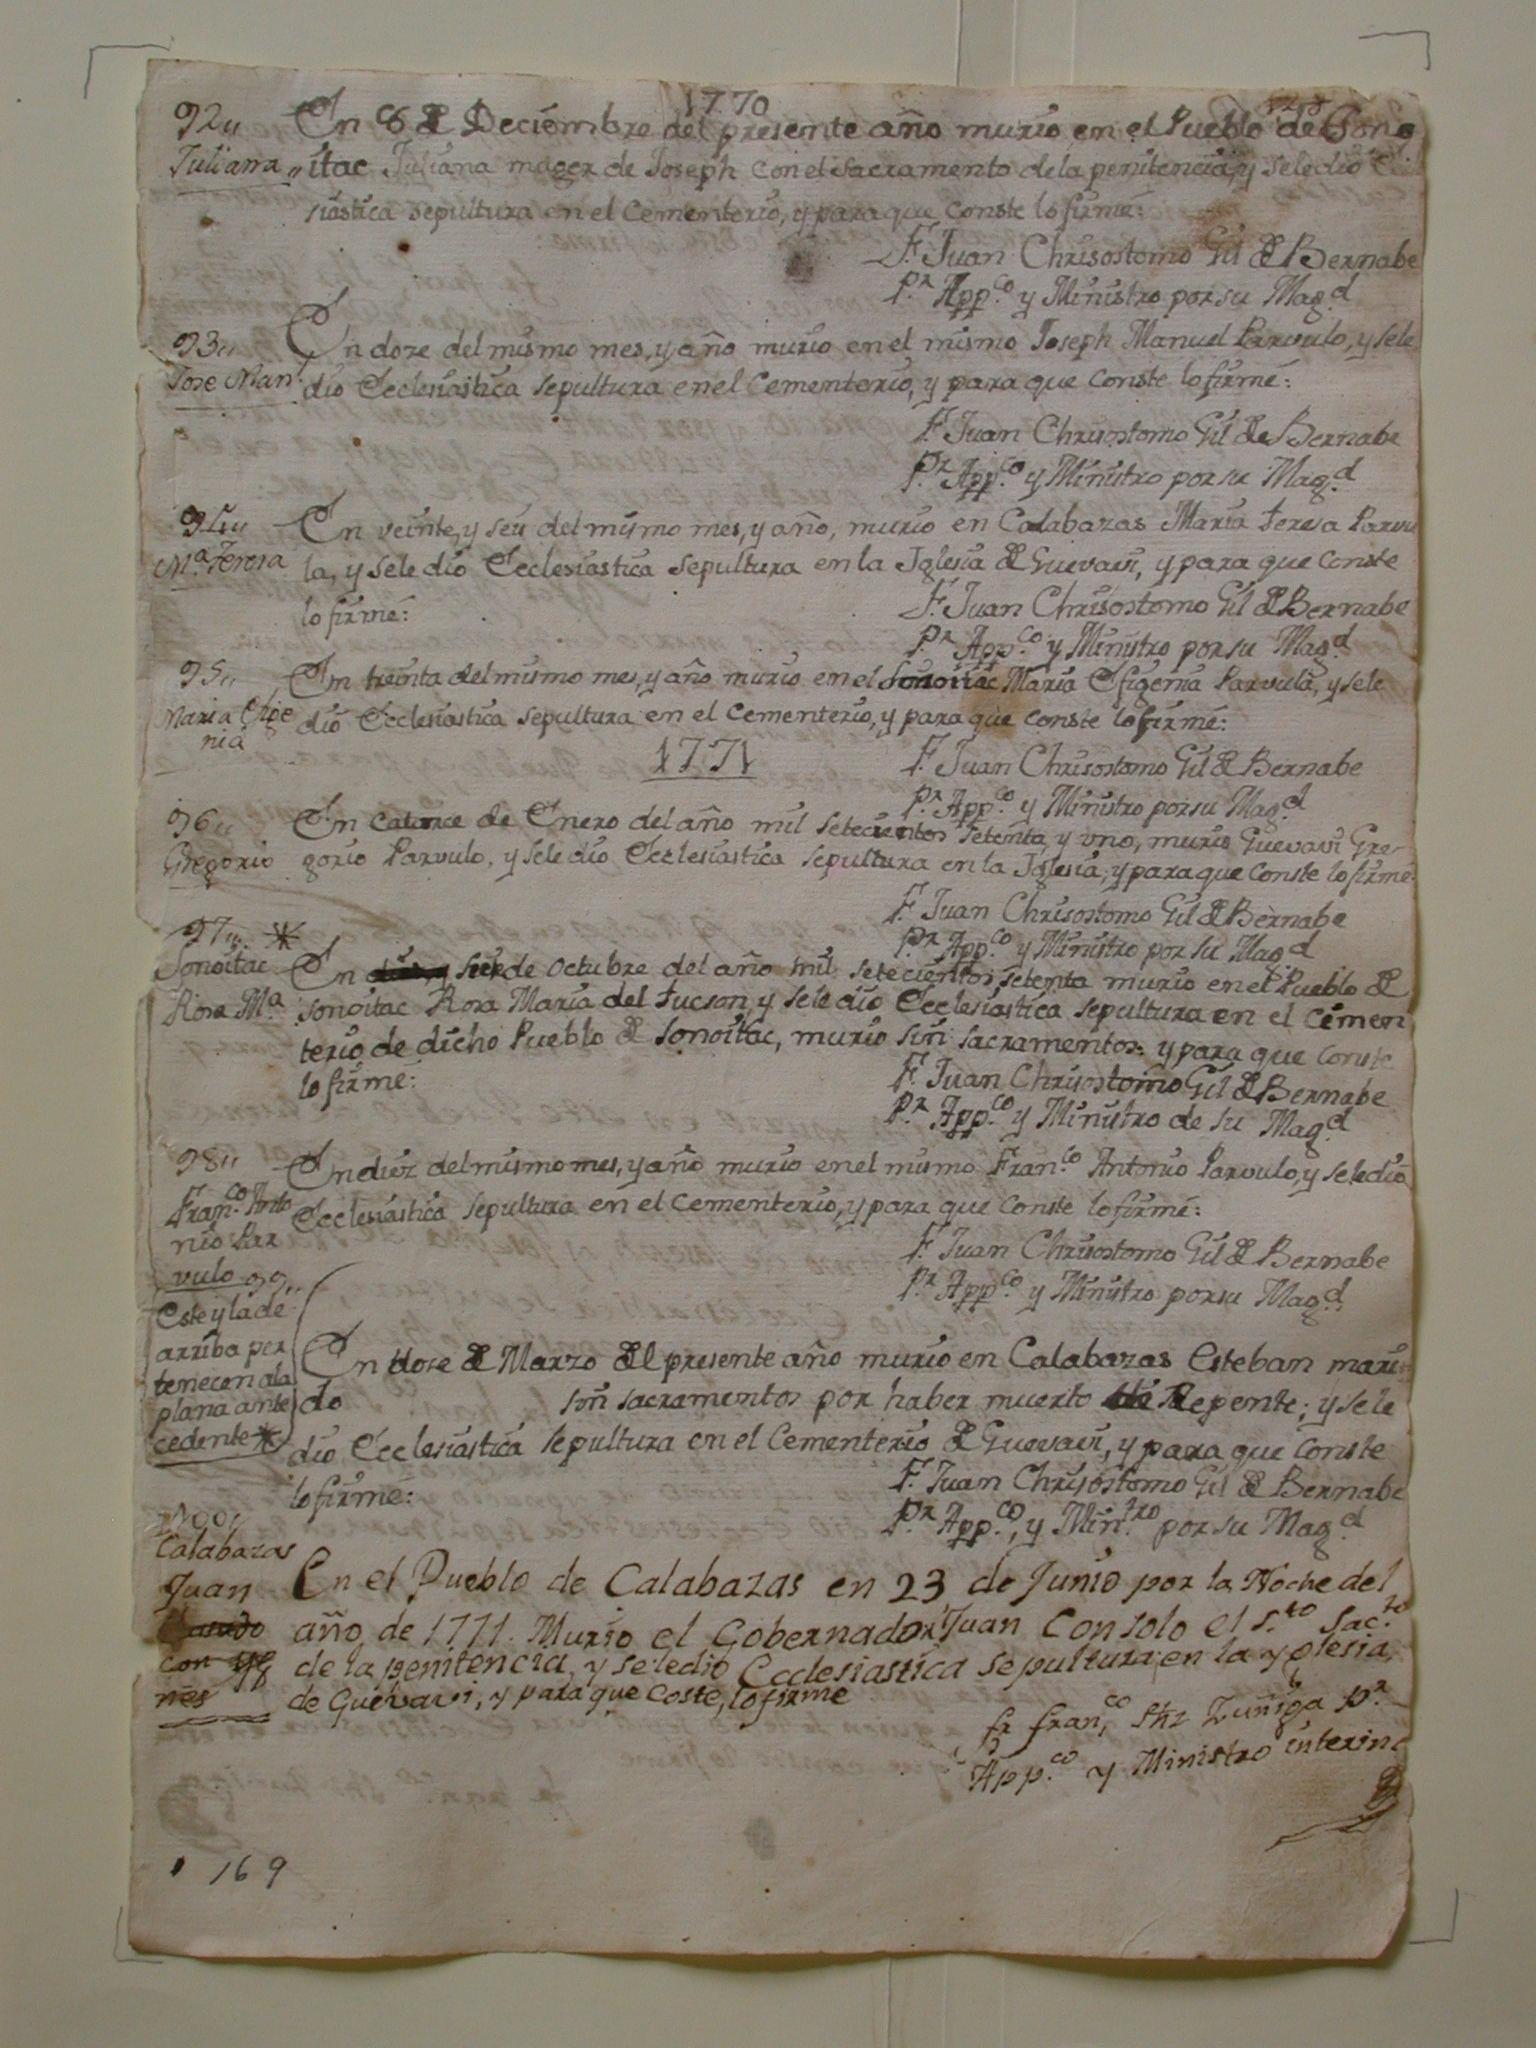 1770
92,, En 6 de Deciembre del presente año murio en el Pueblo de Sono
Juliana ,,itac Juliana muger de Joseph con el Sacramento de la penitencia, y se le dio Ecle
siastica sepultura en el Cementerio, y para que conste lo firmé:
F. Juan Chrisostomo Gil de Bernabe
P.r App.co y Ministro por su Mag.d
93,, En doze del mismo mes, y año murio en el mismo Joseph Manuel Parvulo, y se le
Jose Man.l dio Ecclesiastica sepultura en el Cementerio, y para que conste lo firmé:
F. Juan Chrisostomo Gil de Bernabe
P.r App.co y Ministro por su Mag.d
94,, En veinte, y seis del mismo mes, y año, murio en Calabazas Maria Teresa Parvu
M.a Teresa la, y se le dio Ecclesiastica sepultura en la Iglesia de Guevavi, y para que conste
lo firmé:
F. Juan Chrisostomo Gil de Bernabe
P.r App.co y Ministro por su Mag.d
95,, En treinta del mismo mes, y año murio en el Sonoitac Maria Efigenia Parvula, y se le
Maria Efige dio Ecclesiastica sepultura en el Cementerio, y para que conste lo firmé:
nia
1771
F. Juan Chrisostomo Gil de Bernabe
P.r App.co y Ministro por su Mag.d
96,, En catorce de Enero del año mil setecientos setenta, y uno, murio Guevavi Gre-
Gregorio gorio Parvulo, y se le dio Ecclesiastica sepultura en la Iglesia, y para que conste lo firmé
F. Juan Chrisostomo Gil de Bernabe
P.r App.co y Ministro por su Mag.d
97,, *
Sonoitac En siete de Octubre del año mil setecientos, setenta murio en el Pueblo de
Rosa M.a Sonoitac Rosa Maria del Tucson, y se le dio Ecclesiastica sepultura en el Cemen
terio de dicho Pueblo de Sonoitac, murio sin sacramentos: y para que conste
lo firmé:
F. Juan Chrisostomo Gil de Bernabe
P.r App.co y Ministro de su Mag.d
98,, En diez del mismo mes, y año murio en el mismo Fran.co Antonio Parvulo, y se le dio
Fran.co Anto Ecclesiastica sepultura en el Cementerio, y para que conste lo firmé:
nio Par
vulo
F. Juan Chrisostomo Gil de Bernabe
P.r App.co y Ministro por su Mag.d
99,,
Este y la de
arriba per
tenecen a la
plana ante
cedente *
En doze de Marzo del presente año murio en Calabazas Esteban mari
do sin sacramentos por haber muerto de Repente; y se le
dio Ecclesiastica sepultura en el Cementerio de Guevavi, y para que conste
lo firmé:
F. Juan Chrisostomo Gil de Bernabe
P.r App.co, y Min.tro por su Mag.d
100,,
Calabazas
Juan En el Pueblo de Calabazas en 23 de Junio por la Noche del
año de 1771. Murio el Gobernador Juan con solo el S.to Sac.to
con de la penitencia, y se le dio Ecclesiastica sepultura en la yglesia
nes de Guevavi, y para que coste, lo firme
fr Fran.co Shz Zuñiga P.r
App.co y Ministro interino
169